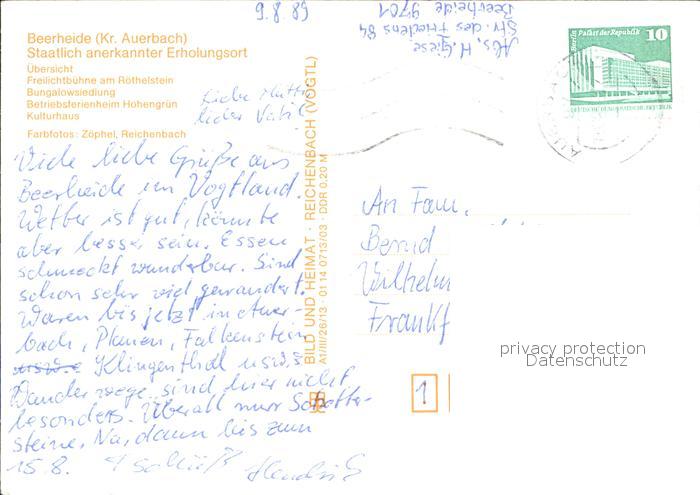 9.8.89
Abs. H. Giese
Str. des Friedens 84
Beerheide 9701
Berlin Palast der Republik
10
DEUTSCHE DEMOKRATISCHE REPUBLIK
Beerheide (Kr. Auerbach)
Staatlich anerkannter Erholungsort
Übersicht
Freilichtbühne am Röthelstein
Bungalowsiedlung
Betriebsferienheim Hohengrün
Kulturhaus
Farbfotos: Zöphel, Reichenbach
Liebe Mutti
lieber Vati!
Viele liebe Grüße aus
Beerheide im Vogtland.
Wetter ist gut, könnte
aber besser sein. Essen
schmeckt wunderbar. Sind
schon sehr viel gewandert.
Waren bis jetzt in Auer-
bach, Plauen, Falkenstein
Klingenthal usw.
Wanderwege sind hier nicht
besonders. Überall nur Schotter-
steine. Na, dann bis zum
15.8. Tschüß Hendrik
BILD UND HEIMAT · REICHENBACH (VOGTL)
A1/III/26/13 · 01 14 0713/03 · DDR 0,20 M
An Fam.
Bernd
Wilhelm
Frankf
1
privacy protection
Datenschutz